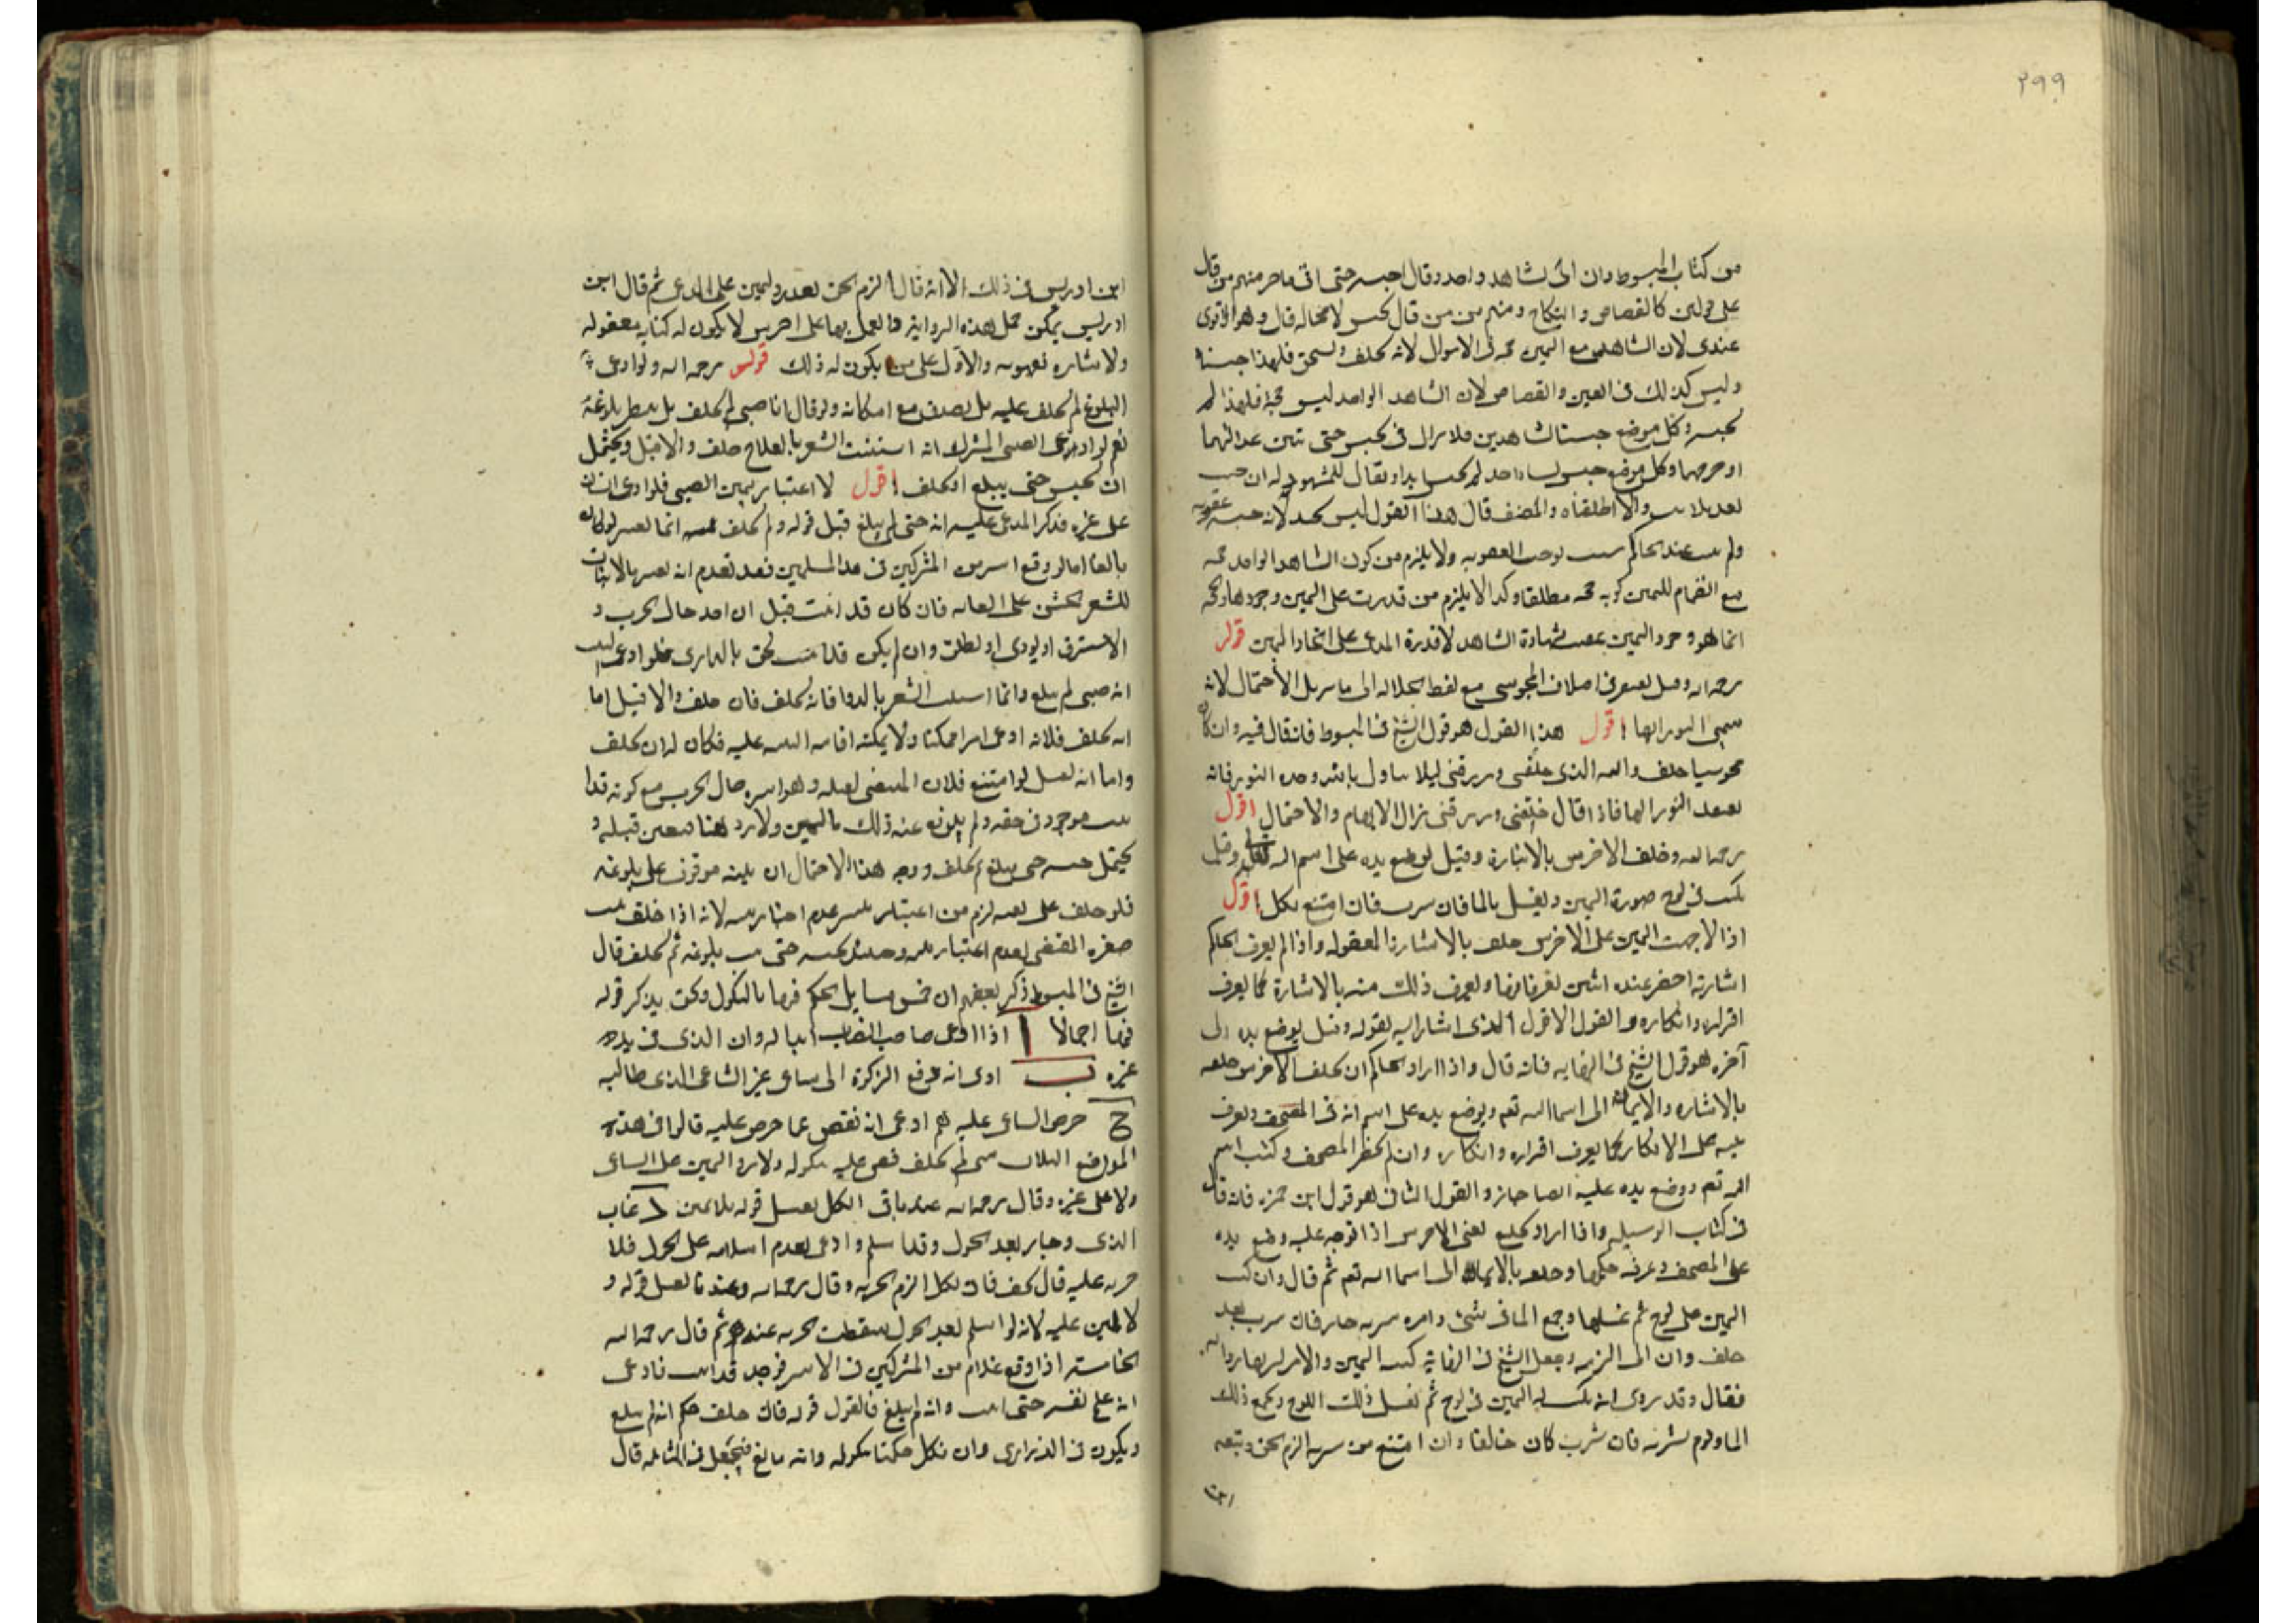 ٢٩٩
من كتاب المبسوط وان اتى بشاهد واحد وقال احبسه حتى اتى باخر منهم من قال
على قولين كالقصاص والنكاح ومنهم من قال يحبس لا محالة قال وهو الاقوى
عندى لان الشاهد مع اليمين حجة فى الاموال لانه يحلف ويستحق فلهذا حبسناه
وليس كذلك فى العين والقصاص لان الشاهد الواحد ليس حجة فلهذا لم
يحبسه وكل موضع حبسنا بشاهدين فلا يزال فى الحبس حتى تبين عدالتهما
او جرحهما وكل موضع حبس بشاهد واحد لم يحبس ابدا ويقال للمشهود له ان جئت
والا اطلقناه والمصنف قال هذا القول ليس بجيد لانه حبسه عقوبة
ولم يثبت عند الحاكم سبب يوجب العقوبة ولا يلزم من كون الشاهد الواحد حجة
مع انضمام اليمين كونه حجة مطلقا وكذا لا يلزم من قدرته على اليمين وجودها والحجة
انما هو وجود اليمين بعد شهادة الشاهد لا قدرة المدعى على ايجاد اليمين قوله
رحمه الله وهل يقتصر فى احلاف المجوسى مع لفظ الجلالة الى ما يزيل الاحتمال لانه
سمى النور الها اقول هذا القول هو قول الشيخ فى المبسوط فانه قال فيه وان كان
مجوسيا حلف والله الذى خلقنى ورزقنى ليلا يتاول بالله وحده النور فانه
يعتقد النور الها فاذا قال خلقنى ورزقنى زال الابهام والاحتمال اقول
رحمه الله وحلف الاخرس بالاشارة وقيل يوضع يده على اسم الله تعالى وقيل
يكتب فى لوح صورة اليمين ويغسل بالما فان شرب فان امتنع نكل اقول
اذا توجهت اليمين على الاخرس حلف بالاشارة المعقولة واذا لم يعرف الحاكم
اشارته احضر عنده اثنين يعرفانها ويعرف ذلك منه بالاشارة كما يعرف
اقراره وانكاره والقول الاول الذى اشار اليه بقوله وقيل يوضع يده الى
آخره هو قول الشيخ فى النهاية فانه قال واذا اراد الحاكم ان يحلف الاخرس حلفه
بالاشارة والايماء الى اسما الله تعم ويوضع يده على اسم الله فى المصحف ويعرف
يمينه على الانكار كما يعرف اقراره وانكاره وان لم يحضر المصحف وكتب اسم
الله تعم ووضع يده عليه ايضا جاز والقول الثانى هو قول ابن حمزة فانه قال
فى كتاب الوسيلة واذا اراد تحليفه يعنى الاخرس اذا توجه عليه وضع يده
على المصحف وعرفه حكمها وحلفه بالايماء الى اسما الله تعم ثم قال وان كتب
اليمين على لوح ثم غسلها وجمع الما فى شئ وامره بشربه جاز فان شرب فقد
حلف وان ابى الزمه وجعل الشيخ فى النهاية كتب اليمين والامر بشربها رواية
فقال وقد روى انه يكتب له اليمين فى لوح ثم يغسل ذلك اللوح ويجمع ذلك
الما ويؤمر بشربه فان شرب كان حالفا وان امتنع من شربه الزم الحق وتبعه
ابن
ابن ادريس فى ذلك الا انه قال الزم الحق بعد رد اليمين على المدعى ثم قال ابن
ادريس يمكن حمل هذه الرواية والعمل بها على اخرس لا يكون له كناية معقولة
ولا اشارة مفهومة والاول على من يكون له ذلك قوله رحمه الله ولو ادعى
البلوغ لم يحلف عليه بل يصدق مع امكانه ولو قال انا صبى لم يحلف بل ينتظر بلوغه
نعم لو ادعى الصبى المشرك انه استنبت الشعر بالعلاج حلف والا قتل ويحتمل
ان يحبس حتى يبلغ او يحلف اقول لا اعتبار بيمين الصبى فلو ادعى انسان
على غيره فذكر المدعى عليه انه صبى لم يبلغ قبل قوله ولم يحلف انما يعتبر لو كان
بالغا اما لو وقع اسر من المشركين فى يد المسلمين فقد تقدم انه يعتبر بالانبات
للشعر الخشن على العانة فان كان قد انبت قبل ان اخذ حال الحرب و
الاسترق او يودى او يطلق وان لم يكن قد انبت لحق بالذرارى فلو ادعى
انه صبى لم يبلغ وانما استنبت الشعر بالدوا فانه يحلف فان حلف والا قتل اما
انه يحلف فلانه ادعى امرا ممكنا ولا يمكنه اقامة البينة عليه فكان له ان يحلف
واما انه يقتل لو امتنع فلان المقتضى لقتله وهو اسره حال الحرب مع كونه قد انبت
موجود فى حقه ولم يدفع عنه ذلك باليمين ولا رد هنا فتعين قتله و
يحتمل حبسه حتى يبلغ ثم يحلف ووجه هذا الاحتمال ان يمينه موقوف على بلوغه
فلو حلف على لزم من اعتبار عدم اعتبار يمينه لانه اذا حلف ثبت
صغره المقتضى لعدم اعتبار يمينه وحينئذ يحبس حتى يثبت بلوغه ثم يحلف قال
الشيخ فى المبسوط ذكر بعضهم ان خمس مسايل يحكم فيها بالنكول ونحن نذكر قوله
فيها اجمالا ا اذا ادعى صاحب النصاب ابداله وان الذى فى يده
غيره ب ادعى انه دفع الزكوة الى ساعى غير الساعى الذى طالبه
ج خرص الساعى عليه ثم ادعى انه نقص عما خرص عليه قالوا فى هذه
المواضع الثلاث متى لم يحلف قضى عليه بنكوله ولا ترد اليمين على الساعى
ولا على غيره وقال رحمه الله عندنا فى الكل يقبل قوله بلا يمين د غاب
الذى وجاء بعد الحول وقد اسلم وادعى تقدم اسلامه على الحول فلا
جزية عليه قال يحلف فان نكل الزم الجزية وقال رحمه الله وعندنا يقبل قوله و
لا يمين عليه لانه لو اسلم بعد الحول سقطت الجزية عنده ثم قال رحمه الله
الخامسة اذا وقع غلام من المشركين فى الاسر فوجد قد انبت فادعى
انه عالج نفسه حتى انبت وانه لم يبلغ فالقول قوله فان حلف حكم انه لم يبلغ
ويكون فى الذرارى وان نكل حكمنا بنكوله وانه بالغ فيجعل فى المقاتلة قال